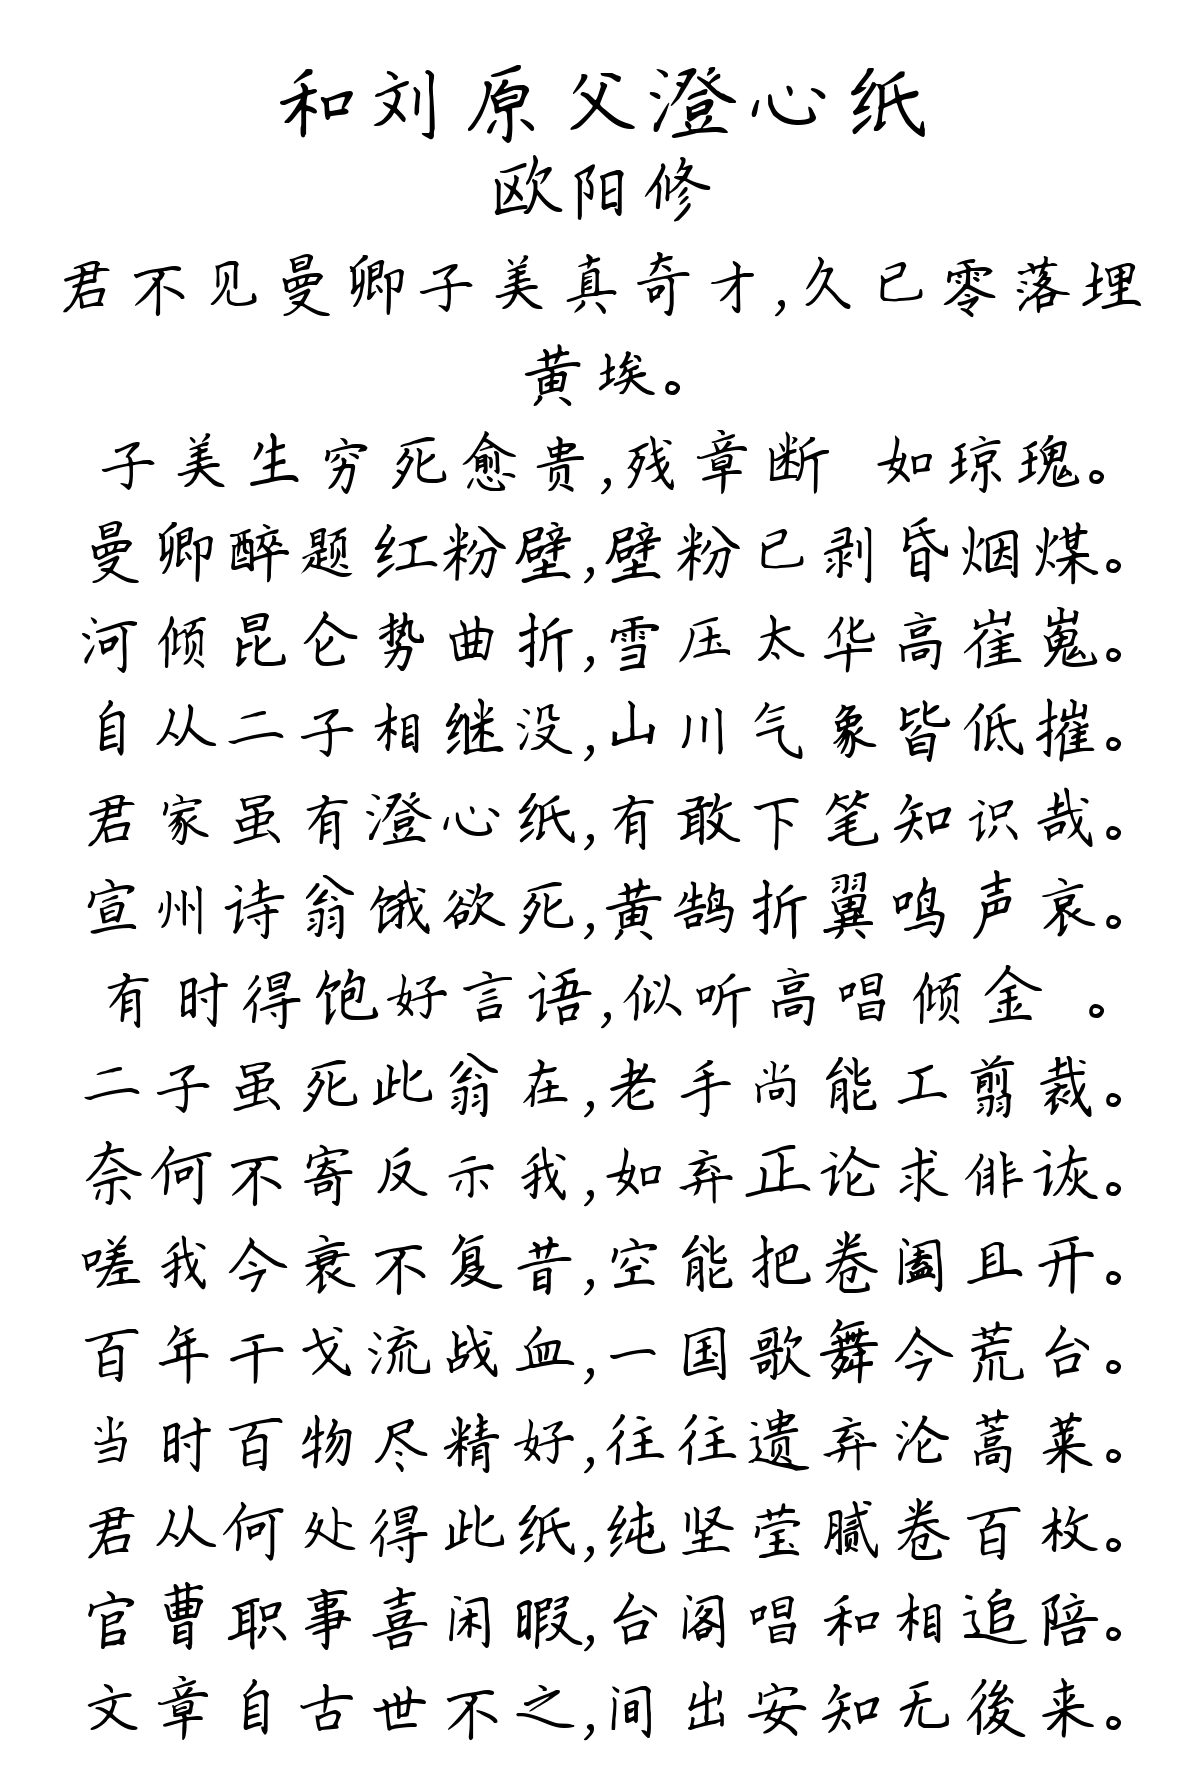 和刘原父澄心纸
欧阳修
君不见曼卿子美真奇才,久已零落埋
黄埃。
子美生穷死愈贵,残章断 如琼瑰。
曼卿醉题红粉壁,壁粉已剥昏烟煤。
河倾昆仑势曲折,雪压太华高崔嵬。
自从二子相继没,山川气象皆低摧。
君家虽有澄心纸,有敢下笔知识哉。
宣州诗翁饿欲死,黄鹄折翼鸣声哀。
有时得饱好言语,似听高唱倾金 。
二子虽死此翁在,老手尚能工剪裁。
奈何不寄反示我,如弃正论求俳诙。
嗟我今衰不复昔,空能把卷阖且开。
百年干戈流战血,一国歌舞今荒台。
当时百物尽精好,往往遗弃沦蒿莱。
君从何处得此纸,纯坚莹腻卷百枚。
官曹职事喜闲暇,台阁唱和相追陪。
文章自古世不之,间出安知无後来。